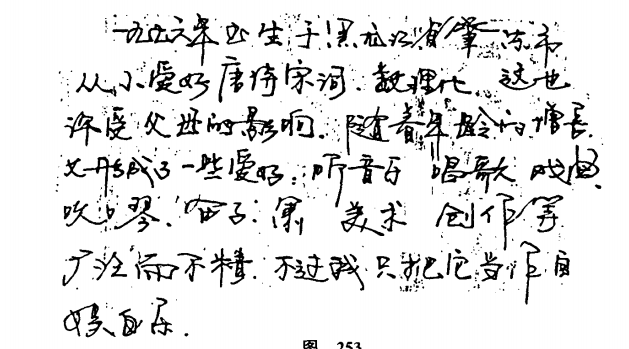 一九六六年出生于黑龙江省肇东市
从小爱好唐诗宋词.数理化.这也
许受父母的影响.随着年龄的增长.
又形成了一些爱好:听音乐 唱歌 戏曲.
吹口琴.笛子. 美术 创作等
广泛而不精.不过我只把它当作自
娱自乐.
图 253